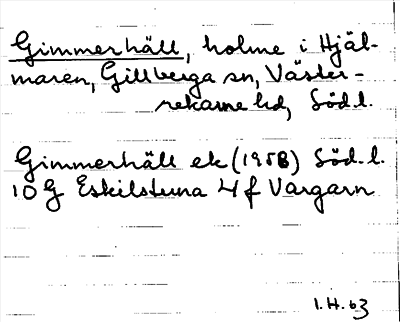 Gimmerhäll, holme i Hjäl-
maren, Gillberga sn, Väster-
rekarne hd, Södl.
Gimmerhäll ek (1958) Södl.
10G Eskilstuna 4f Vargarn
I.H.63